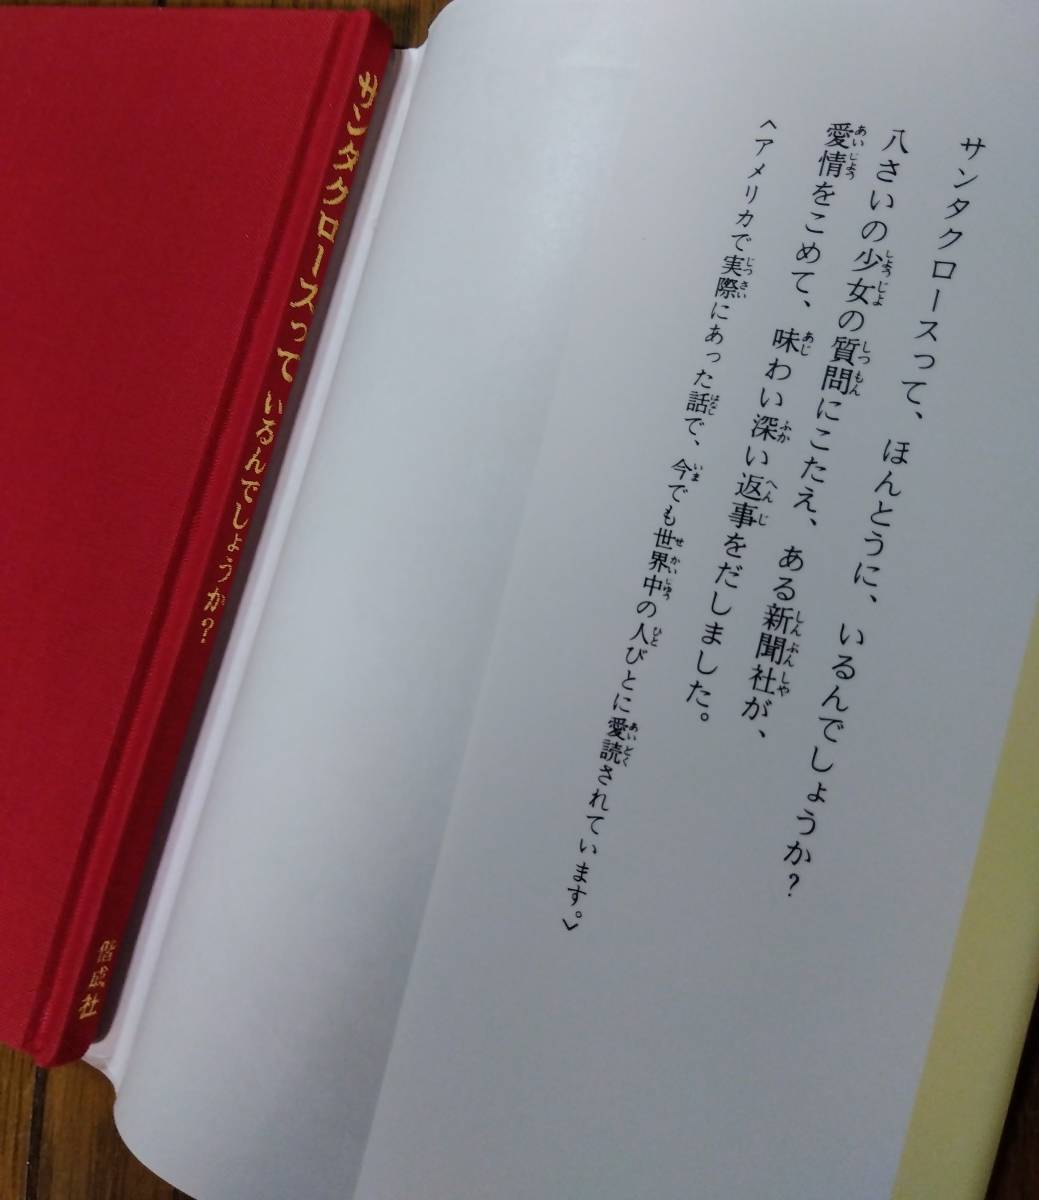 サンタクロースって、ほんとうに、いるんでしょうか?
八さいの少女の質問にこたえ、ある新聞社が、
愛情をこめて、味わい深い返事をだしました。
<アメリカで実際にあった話で、今でも世界中の人びとに愛読されています。>
サンタクロースって いるんでしょうか?
偕成社